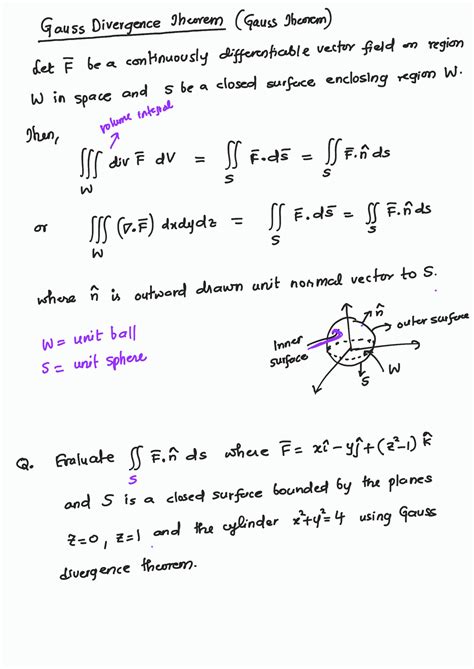 Gauss Divergence Theorem (Gauss Theorem)
Let F̅ be a continuously differentiable vector field on region
W in space and S be a closed surface enclosing region W.
volume integral
Then,
∭_W div F̅ dV = ∬_S F̅.ds̅ = ∬_S F̅.n̂ ds
or ∭_W (∇.F̅) dxdydz = ∬_S F̅.ds̅ = ∬_S F̅.n̂ ds
where n̂ is outward drawn unit normal vector to S.
W = unit ball
S = unit sphere
n̂
outer surface
Inner surface
W
S
Q. Evaluate ∬_S F̅.n̂ ds where F̅ = xî - yĵ + (z²-1) k̂
and S is a closed surface bounded by the planes
z=0, z=1 and the cylinder x²+y²=4 using Gauss
divergence theorem.